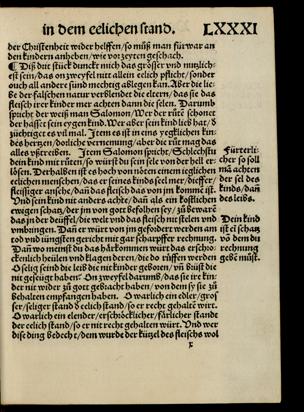 in dem eelichen stand. LXXXI
der Christenheit wider helffen/so můß man fürwar an
den kindern anheben/wie vor zeyten geschach.
¶ Diß düt stuck dunckt mich das grösser vnd nutzlich-
est sein/das on zweyfel nitt allein eelich pflicht/sonder
ouch all andere sünd mechtig ablegen kan. Aber die lie-
be der falschen natur verblendet die eltern/das sie das
fleisch irer kinder mer achten dann die selen. Darumb
spricht der weiß man Salomon/Wer der růtē schonet
der hasset sein eygen kind. Wer aber sein kind lieb hat/d̄
züchtiget es vil mal. Item es ist in eins yegklichen kin-
des hertzen/dorliche vernemung/aber die růt mag das
alles vßtreiben. Item Salomon spricht/Schlechstu
dein kind mit růten/so würst du sein sele von der hell er-
lösen. Derhalben ist es hoch von nöten einem ieglichen
eelichen menschen/das er seines kinds seel mer/dieffer/
fleissiger ansehe/dañ das fleisch das von jm komme ist.
Vnd sein kind nit anders achte/dañ als ein kostlichen
ewigen schatz/der jm von gott befolhen sey/zů bewarē
das in der düffel/die welt vnd das fleisch nit stelen vnd
vmbringen. Dañ er würt von jm gefordert werden am
tod vnd jüngsten gericht mit gar scharpffer rechnung.
Dañ wo meinstu das harkommen würt das erschro-
ckenlich heülen vnd klagen deren/die do rüffen werden
O selig seind die leib die nit kinder geboren/vñ brüst die
nit geseüget haben. On zweyfel darumb/das sie irr kin-
der nit wider zů gott gebracht haben/von dem sy sie zů
behalten empfangen haben. O warlich ein edler/gros-
ser/seliger stand d̄ eelich stand/so er recht gehaltē wirt.
O warlich ein elender/erschröcklicher/färlicher stande
der eelich stand/so er nit recht gehalten würt. Vnd wer
dise ding bedecht/dem wurde der kützel des fleischs wol
Fürterli-
cher so soll
mā achten
der sel des
kinds/dañ
des leibs.
Dein kind
ist eī schatz
vō dem du
rechnung
gebē můst.
x